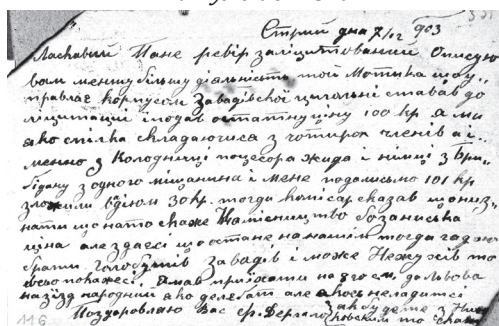 Стрий дна 7/12 903
Ласкавий Пане ревір заліцитований Описую
вам меншу більшу діяльність той Мотика що у
правляє корпусом Завадівскої цигольні ставав до
ліцитациі і подав остатну ціну 100 кр а ми
яко спілка складаючися з чотирох членів а і
менно з Колодниці поцесора жида і німці з Бри
гідану з одного міщанина і мене подалисьмо 101 кр
зложили вадіюм 30 кр. тогди комісар сказав що
нати що на то скаже Намісництво бо занизька
ціна але здаєсь що остане на нашім тогда гадаю
брати Голобутів Завадів і може Нежухів то
покажесь. Я мав приїхати на 8го см. до Львова
на зїзд народний яко делєґат але якось не ладитсі
Поздоровляю Вас
116